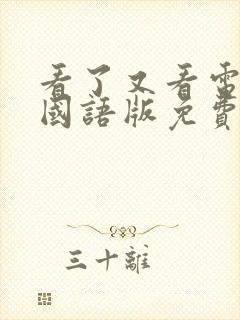 看了又看電
國語版免費
三十離